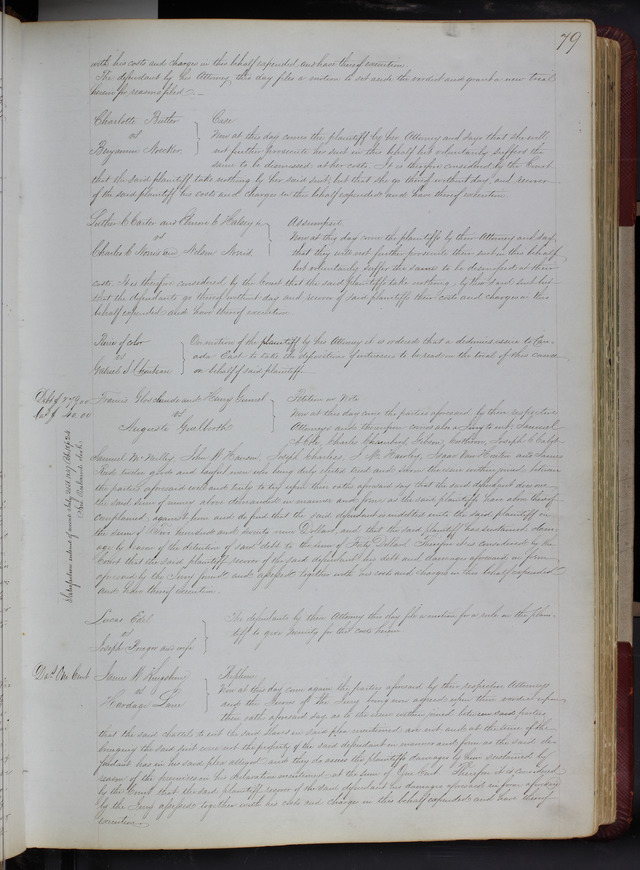 79
with his costs and charges in this behalf expended and have thereof execution.
The defendant by his Attorney this day files a motion to set aside the verdict and grant a new trial
herein for reasons filed.
Charlotte Butler
vs
Benjamin
Case
Now at this day comes the plaintiff by her Attorney and says that she will
not further prosecute her suit in this behalf but voluntarily suffers the
same to be dismissed at her costs. It is therefore considered by the Court
that the said plaintiff take nothing by her said suit, but that she go thereof without day, and recover
of the said plaintiff his costs and charges in this behalf expended and have thereof execution.
Luther C Carter and C Halsey
vs
Charles C Norris and Nelson Norris
Assumpsit
Now at this day come the plaintiffs by their Attorney and say
that they will not further prosecute their suit in this behalf
but voluntarily suffer the same to be dismissed at their
costs. It is therefore considered by the Court that the said plaintiffs take nothing by their said suit but
that the defendants go thereof without day and recover of said plaintiffs their costs and charges in this
behalf expended and have thereof execution.
Pierre of color
vs
Gabriel S Chouteau
On motion of the plaintiff by his Attorney it is ordered that a dedimus issue to Can-
ada East to take the depositions of witnesses to be read on the trial of this cause
on behalf of said plaintiff
Debt $ 279.00
$ 40.00
Satisfaction entered of record July 21st
Clerk
Francis and Henry
vs
Auguste
Petition on Note
Now at this day come the parties aforesaid by their respective
Attorneys and thereupon comes also a Jury to wit, Samuel
Cole Charles Joseph C
Samuel John W Hanson, Joseph Charless, J M Hawley, Isaac Van and James
Reed twelve good and lawful men who being duly elected tried and sworn the issue within joined between
the parties aforesaid well and truly to try upon their oaths aforesaid say that the said defendant does owe
the said sum of money above demanded in manner and form as the said plaintiffs have above thereof
complained against him and do find that the said defendant is indebted unto the said plaintiff in
the sum of Two hundred and seventy nine Dollars and that the said plaintiff has sustained dam-
age by reason of the detention of said debt to the sum of Forty Dollars. Therefore it is considered by the
Court that the said plaintiff recover of the said defendant his debt and damages aforesaid in form
aforesaid by the Jury found and assessed together with his costs and charges in this behalf expended
and have thereof execution.
Lucas Edel
vs
Joseph and wife
The defendants by their Attorney this day file a motion for a rule on the plain-
tiff to give security for the costs herein
One Cent
James W Kingsbury
vs
Hardage Lane
Replevin
Now at this day come again the parties aforesaid by their respective Attorneys
and the Jurors of the Jury being now agreed upon their verdict upon
their oaths aforesaid say, as to the issue within joined between said parties
that the said chattels to wit the said slaves in said plea mentioned are not and at the time of the
bringing the said suit were not the property of the said defendant in manner and form as the said de-
fendant has in his said plea alleged and they do assess the plaintiffs damages by him sustained by
reason of the premises in his declaration mentioned at the sum of One Cent. Therefore it is considered
by the Court that the said plaintiff recover of the said defendant his damages aforesaid in form aforesaid
by the Jury assessed together with his costs and charges in this behalf expended and have thereof
execution.